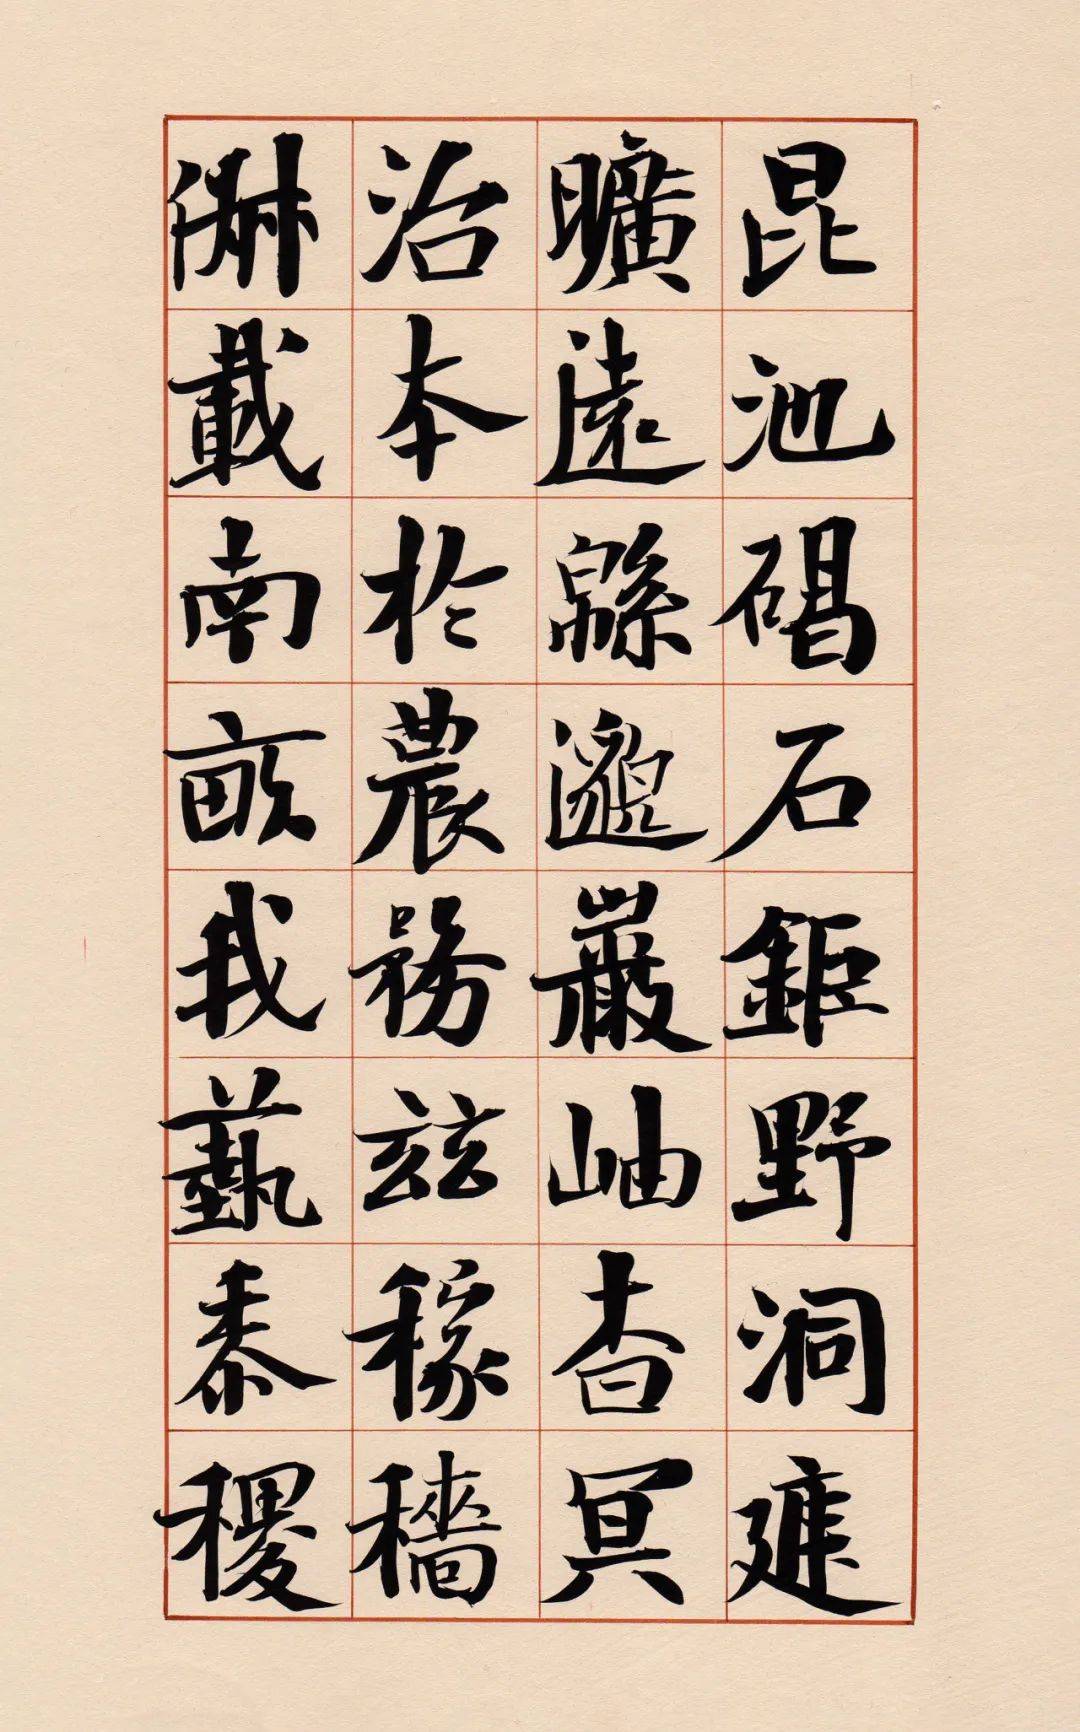 昆池碣石鉅野洞庭
曠遠緜邈巖岫杳冥
治本於農務茲稼穡
俶載南畝我藝黍稷